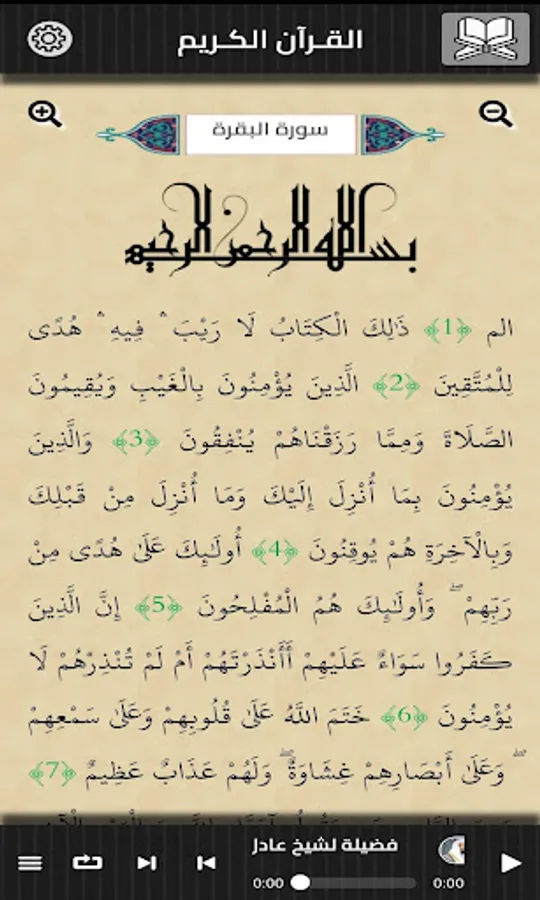 القرآن الكريم
سورة البقرة
بسم الله الرحمن الرحيم
الم ﴿1﴾ ذَٰلِكَ الْكِتَابُ لَا رَيْبَ ۛ فِيهِ ۛ هُدًى
لِلْمُتَّقِينَ ﴿2﴾ الَّذِينَ يُؤْمِنُونَ بِالْغَيْبِ وَيُقِيمُونَ
الصَّلَاةَ وَمِمَّا رَزَقْنَاهُمْ يُنْفِقُونَ ﴿3﴾ وَالَّذِينَ
يُؤْمِنُونَ بِمَا أُنْزِلَ إِلَيْكَ وَمَا أُنْزِلَ مِنْ قَبْلِكَ
وَبِالْآخِرَةِ هُمْ يُوقِنُونَ ﴿4﴾ أُولَٰئِكَ عَلَىٰ هُدًى مِنْ
رَبِّهِمْ ۖ وَأُولَٰئِكَ هُمُ الْمُفْلِحُونَ ﴿5﴾ إِنَّ الَّذِينَ
كَفَرُوا سَوَاءٌ عَلَيْهِمْ أَأَنْذَرْتَهُمْ أَمْ لَمْ تُنْذِرْهُمْ لَا
يُؤْمِنُونَ ﴿6﴾ خَتَمَ اللَّهُ عَلَىٰ قُلُوبِهِمْ وَعَلَىٰ سَمْعِهِمْ
ۖ وَعَلَىٰ أَبْصَارِهِمْ غِشَاوَةٌ ۖ وَلَهُمْ عَذَابٌ عَظِيمٌ ﴿7﴾
فضيلة لشيخ عادل
0:00 0:00